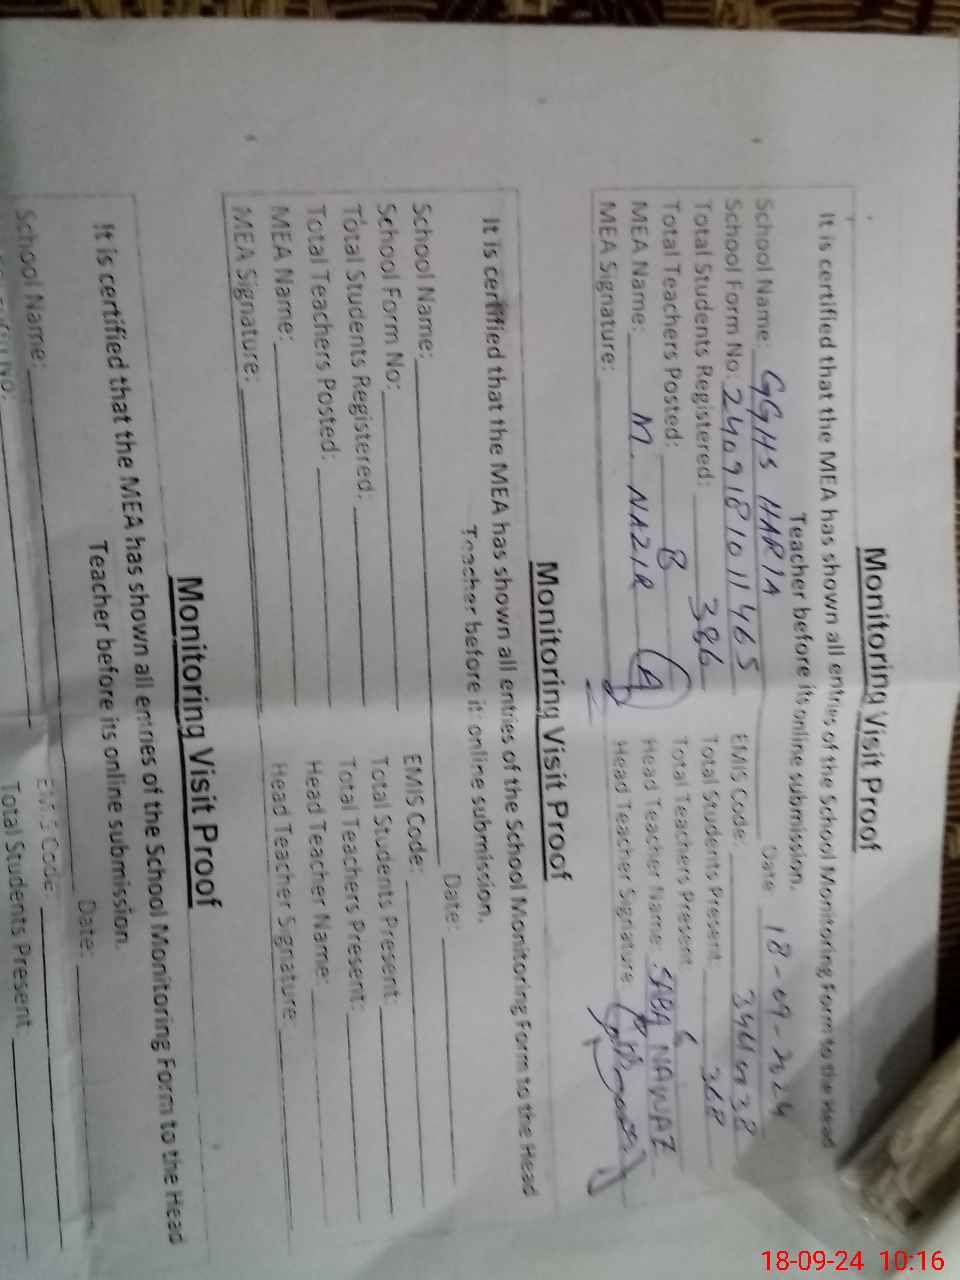 Monitoring Visit Proof
It is certified that the MEA has shown all entries of the School Monitoring Form to the Head
Teacher before its online submission.
School Name: GGHS HARIA Date: 18-09-2024
School Form No: 2409181011465 EMIS Code:
Total Students Registered: 386 Total Students Present: 368
Total Teachers Posted: 8 Total Teachers Present:
MEA Name: M. NAZIR Head Teacher Name: SABA NAWAZ
MEA Signature: Head Teacher Signature:
Monitoring Visit Proof
It is certified that the MEA has shown all entries of the School Monitoring Form to the Head
Teacher before it: online submission.
School Name: Date:
School Form No: EMIS Code:
Total Students Registered: Total Students Present:
Total Teachers Posted: Total Teachers Present:
MEA Name: Head Teacher Name:
MEA Signature: Head Teacher Signature:
Monitoring Visit Proof
It is certified that the MEA has shown all entries of the School Monitoring Form to the Head
Teacher before its online submission.
School Name: Date:
EMIS Code:
Total Students Present
18-09-24 10:16